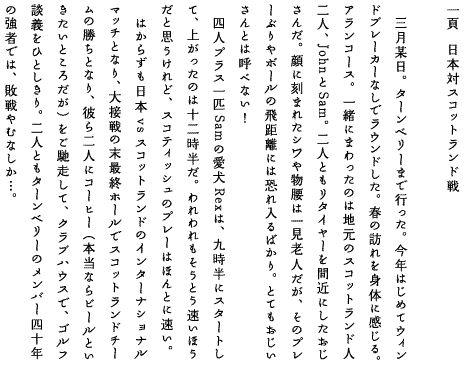 一頁　日本対スコットランド戦
三月某日。ターンベリーまで行った。今年はじめてウィン
ドブレーカーなしでラウンドした。春の訪れを身体に感じる。
アランコース。一緒にまわったのは地元のスコットランド人
二人、JohnとSam。二人ともリタイヤーを間近にしたおじ
さんだ。顔に刻まれたシワや物腰は一見老人だが、そのプレ
ーぶりやボールの飛距離には恐れ入るばかり。とてもおじい
さんとは呼べない！
四人プラス一匹Samの愛犬Rexは、九時半にスタートし
て、上がったのは十二時半だ。われわれもそうとう速いほう
だと思うけれど、スコティッシュのプレーはほんとに速い。
はからずも日本vsスコットランドのインターナショナル
マッチとなり、大接戦の末最終ホールでスコットランドチー
ムの勝ちとなり、彼ら二人にコーヒー（本当ならビールとい
きたいところだが）をご馳走して、クラブハウスで、ゴルフ
談義をひとしきり。二人ともターンベリーのメンバー四十年
の強者では、敗戦やむなしか…。